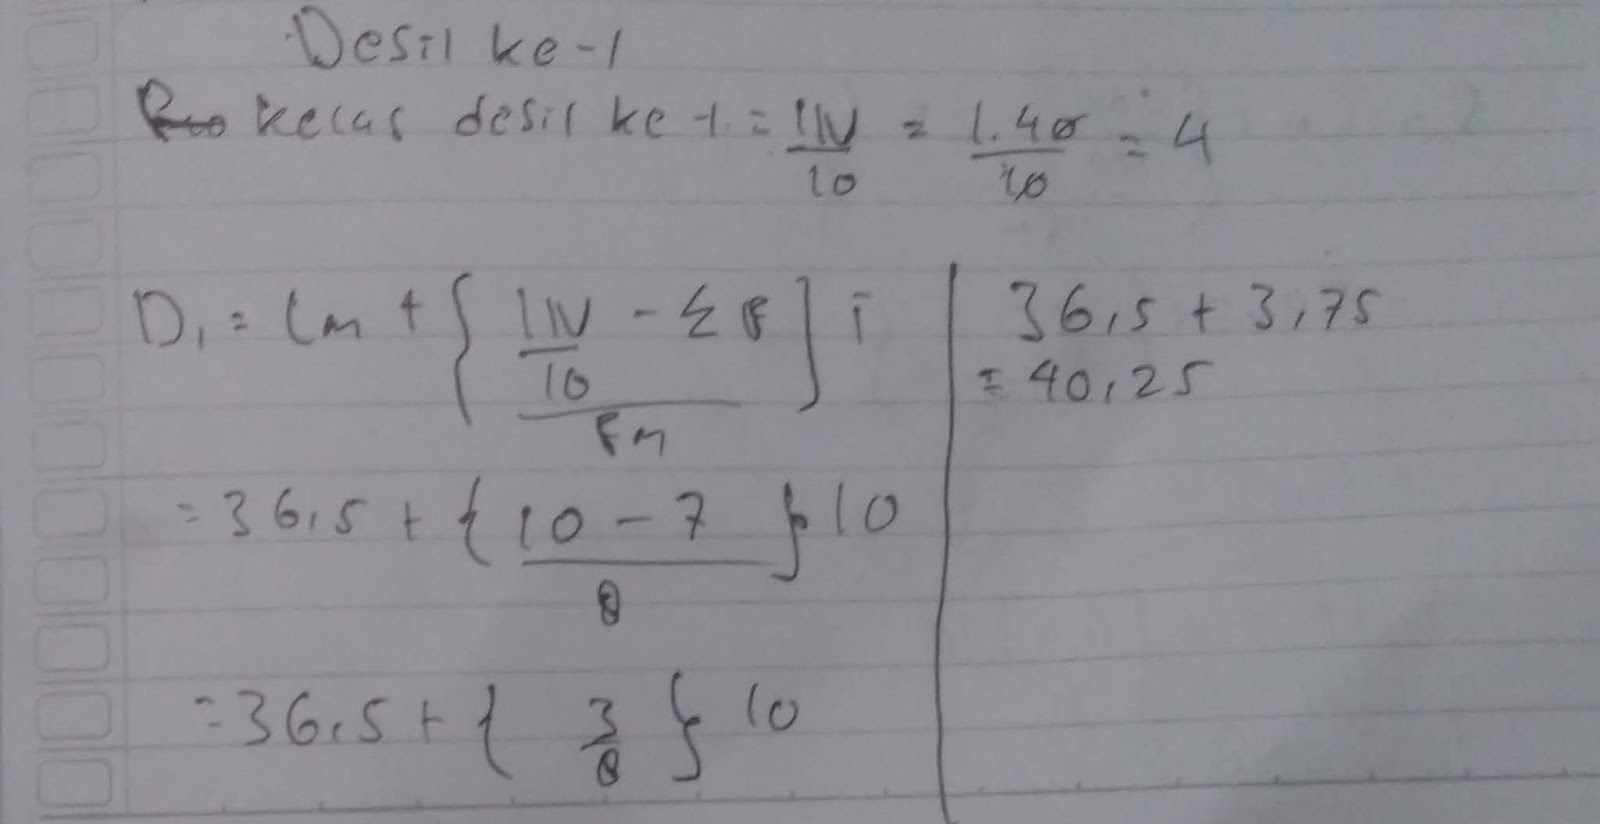 Desil ke-1
kelas desil ke-1 = 1N/10 = 1.40/10 = 4
D₁ = Lm + { 1N/10 - Σf / fm ] i
= 36,5 + { 10 - 7 / 8 } 10
= 36,5 + { 3/8 } 10
36,5 + 3,75
= 40,25